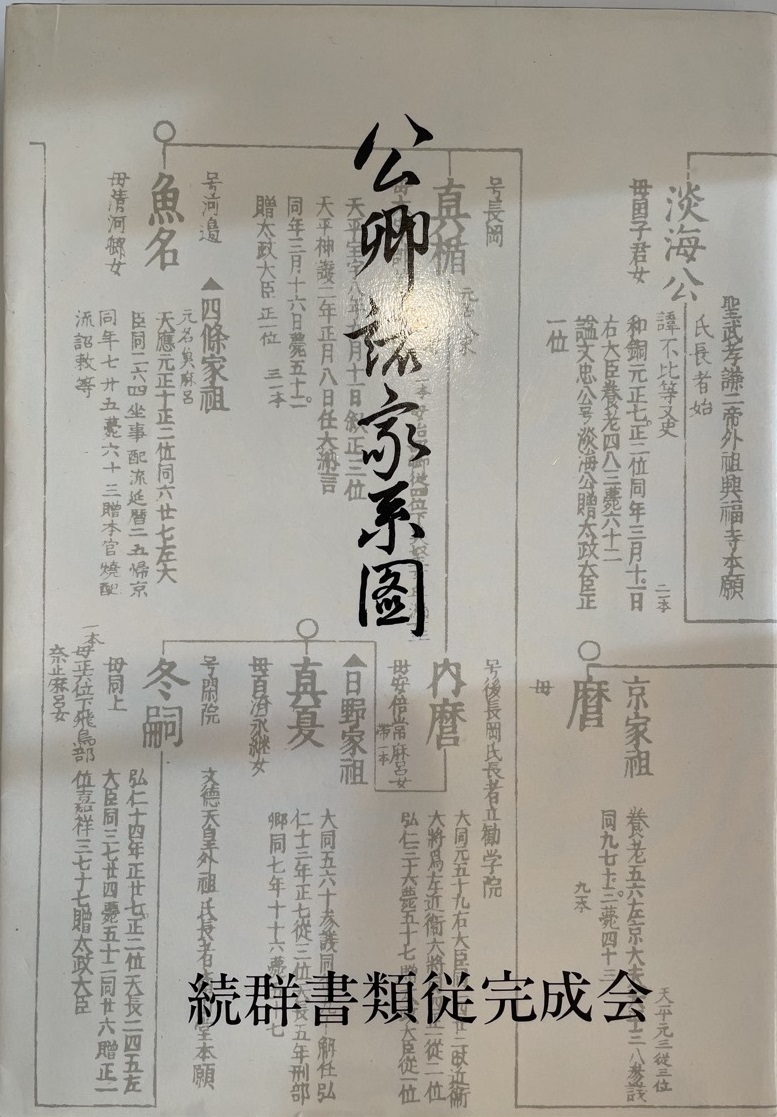 公卿諸家系図
続群書類従完成会
聖武孝謙二帝外祖興福寺本願
氏長者始
淡海公
諱不比等又史
和銅元正七正二位同年三月十一日
右大臣養老四八三薨六十二
謚文忠公号淡海公贈太政大臣正
一位
二本
号長岡
真楯
天平宝字八年九月十一日叙正三位
天平神護二年正月八日任大納言
同年三月十六日薨五十二
贈太政大臣正一位
三一本
号河邊
魚名
母清河卿女
▲四條家祖
元名奥麻呂
天應元正十正二位同六廿七左大
臣同二六四坐事配流延暦二五帰京
同年七廿五薨六十三贈本官焼
流詔敕等
京家祖
麿
母
養老五六左京大夫
同九七十三薨四十三
九本
天平元三従三位
八参議
号後長岡氏長者立勧学院
内麿
母安倍
常麻呂女
帯一本
大同元五十九右大臣
大将為左近衛大将
弘仁三十六薨五十七
▲日野家祖
真夏
母百済永継女
大同五六十参議
仁十三年正七従三位
天長五年刑部
卿同七年十十六薨
号閑院
冬嗣
母同上
一本
母正六位下飛鳥部
奈止麻呂女
文徳天皇外祖氏長者
堂本願
弘仁十四年正廿七正二位天長二四五左
大臣同三七廿四薨五十二同廿六贈正一
位嘉祥三七十七贈太政大臣